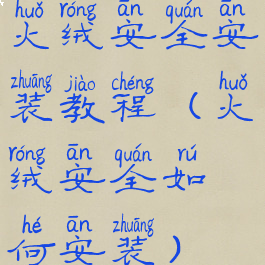 huǒ róng ān quán ān
火绒安全安
zhuāng jiào chéng huǒ
装教程（火
róng ān quán rú
绒安全如
hé ān zhuāng
何安装）